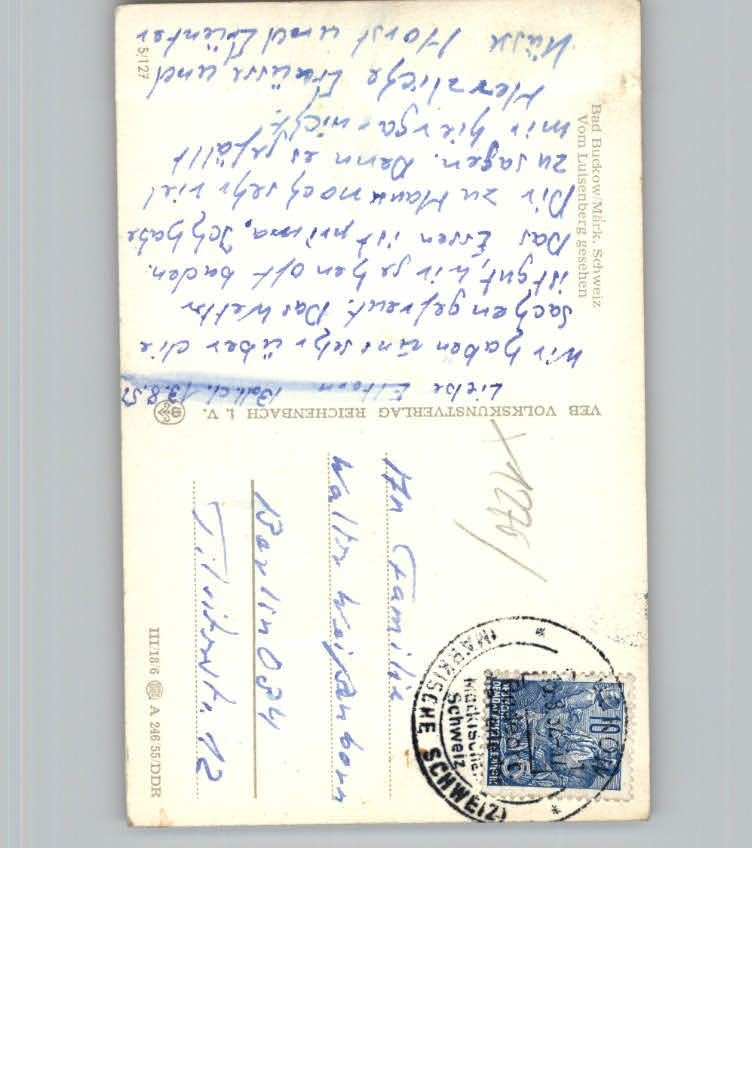 Bad Buckow/Märk. Schweiz
Vom Luisenberg gesehen
Liebe Eltern 13.8.57
Wir haben uns sehr über die
Sachen gefreut. Das Wetter
ist gut, wir gehen oft baden.
Das Essen ist prima. Ich habe
Dir zu Hause noch sehr viel
zu sagen. Denn es gefällt
mir hier gar nicht.
Herzliche Grüsse und
Küsse Horst und Günter
5/127
VEB VOLKSKUNSTVERLAG REICHENBACH I. V.
1276
An Familie
Walter Weißenborn
Berlin O34
Tilsiterstr. 12
III/18/6 A 246/55/DDR
(MÄRKISCHE SCHWEIZ)
Märkische
Schweiz
10
DEUTSCHE
DEMOKRATISCHE REPUBLIK